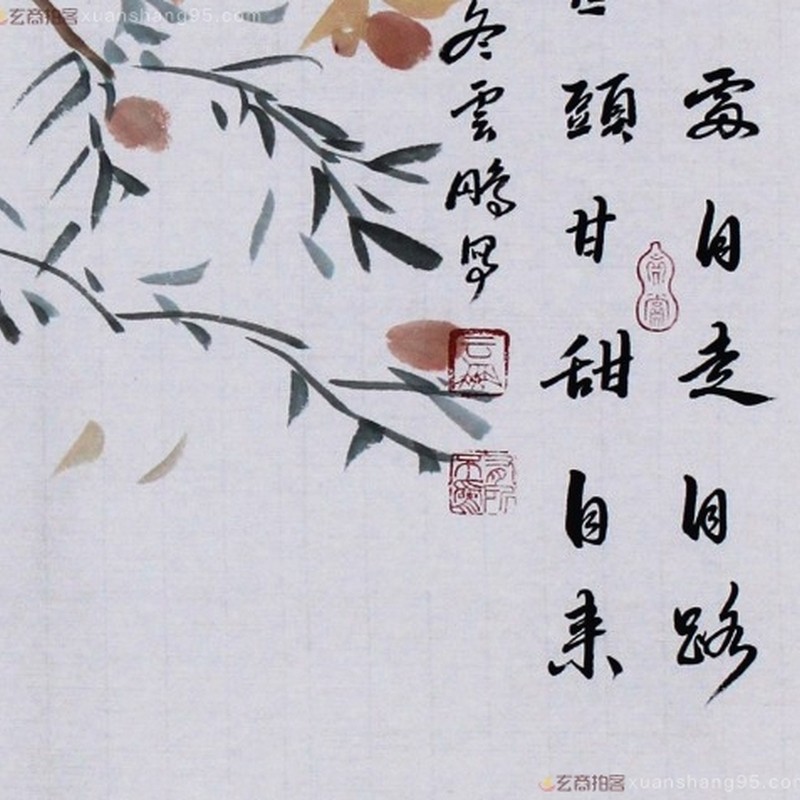 玄商拍客xuanshang95.com
處自走自路
頭甘甜自来
冬雲鵬
玄商拍客xuanshang95.com